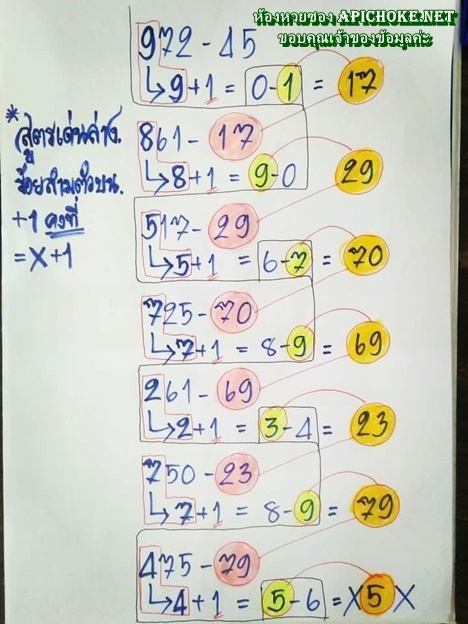 ห้องหวยซอง APICHOKE.NET
ขอบคุณเจ้าของข้อมูลค่ะ
972-45
9+1 = 0-1 = 17
* สูตรเด่นล่าง.
ร้อยสามตัวบน.
+1 คงที่
=X+1
861-17
8+1 = 9-0 29
517-29
5+1 = 6-7 = 70
725-70
7+1 = 8-9 = 69
261-69
2+1 = 3-4 = 23
750-23
7+1 = 8-9 = 79
475-79
4+1 = 5-6 = X5X